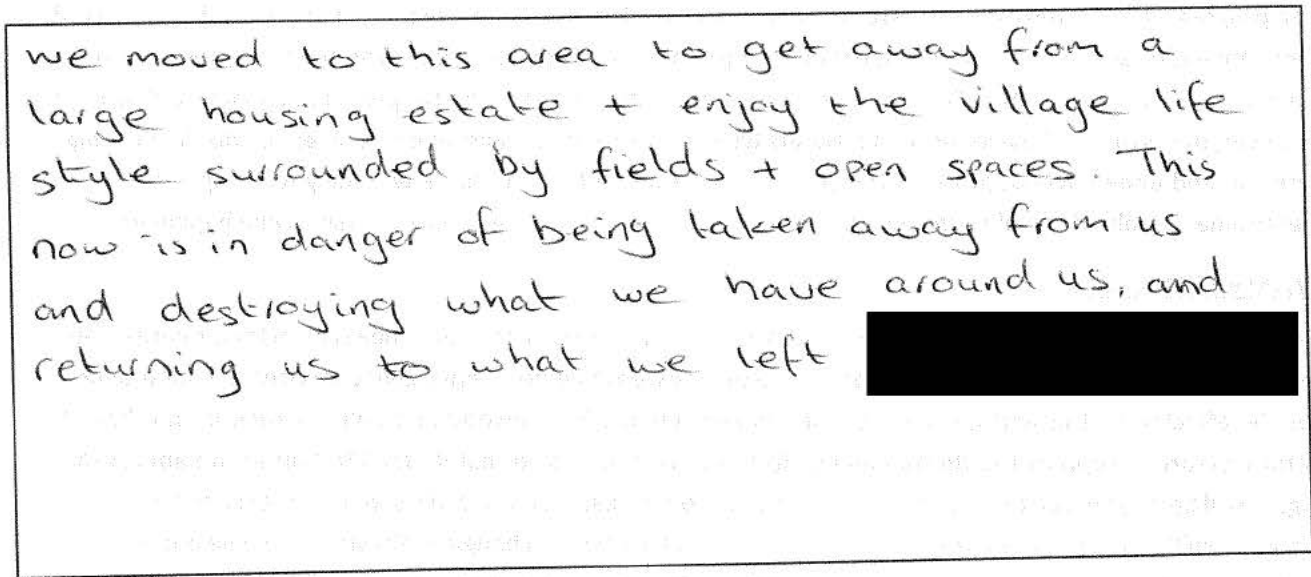 we moved to this area to get away from a
large housing estate + enjoy the village life
style surrounded by fields + open spaces. This
now is in danger of being taken away from us
and destroying what we have around us, and
returning us to what we left